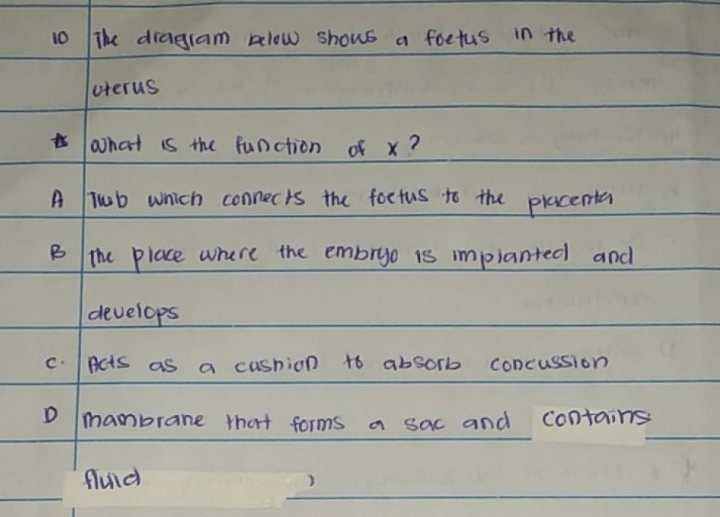 10 The diagram below shows a foetus in the
uterus
What is the function of x?
A Tiub which connects the foetus to the placenta
B the place where the embryo is implanted and
develops
C. Acts as a cushion to absorb concussion
D mambrane that forms a sac and contains
fluid